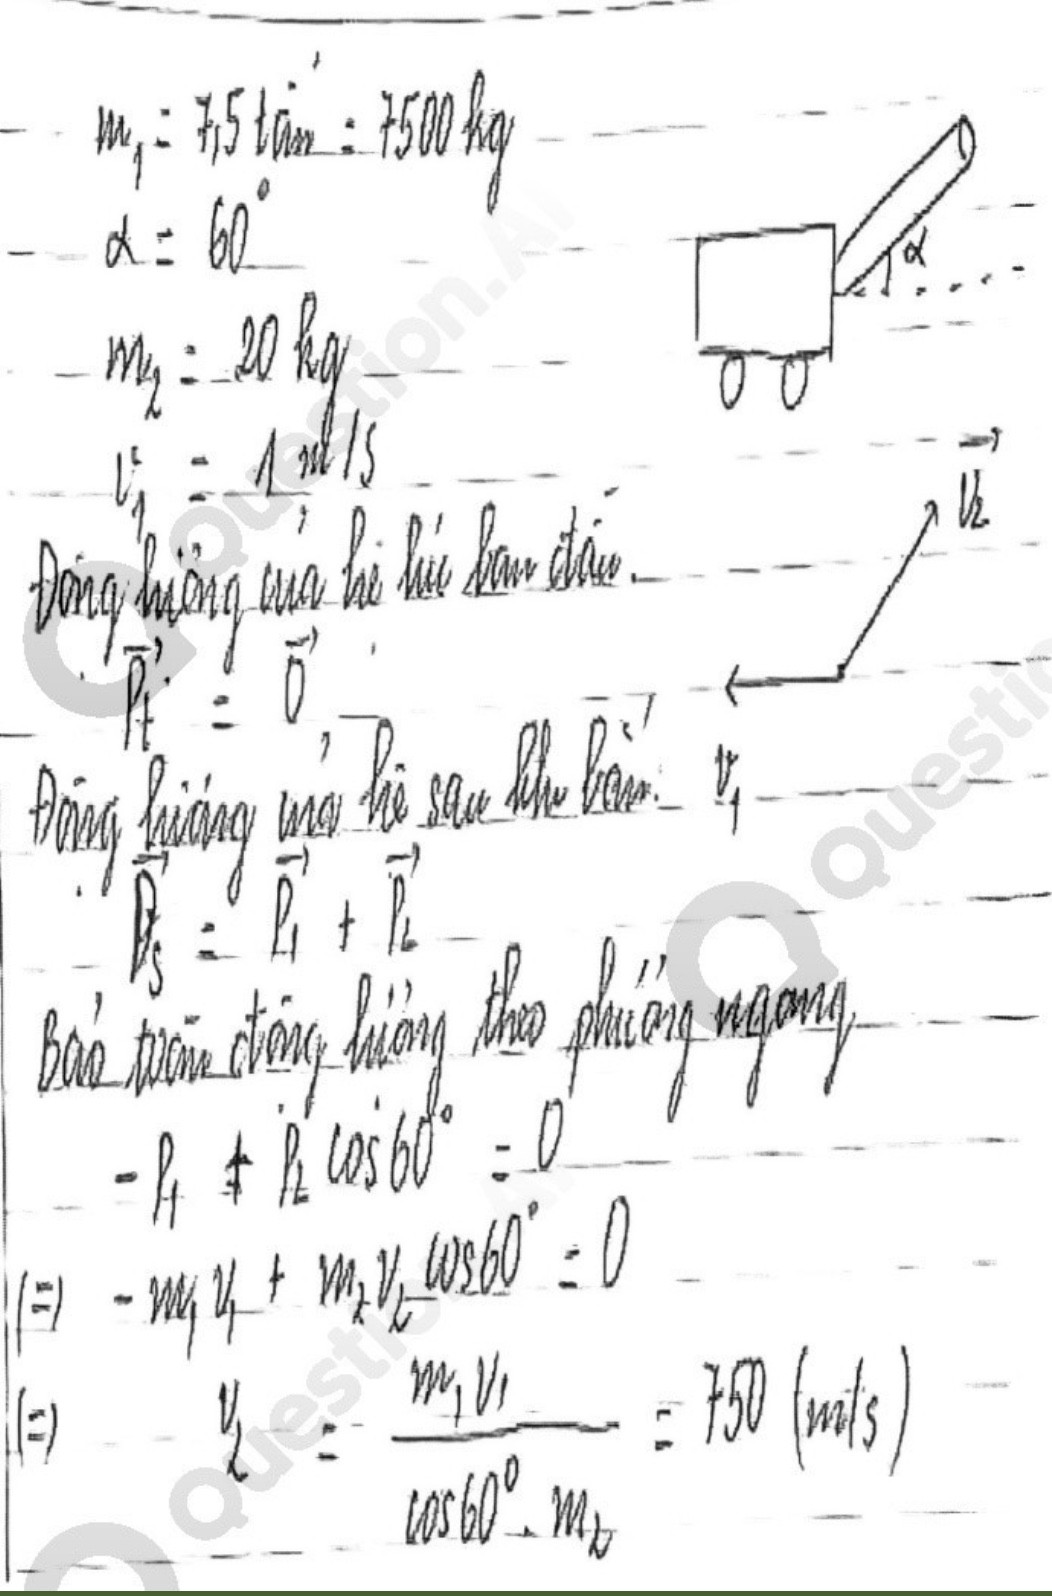 m₁ = 7,5 tấn = 7500 kg
α = 60°
α
m₂ = 20 kg
v₁ = 1 m/s
v₂
Động lượng của hệ lúc ban đầu.
Pt = 0
Động lượng của hệ sau khi bắn.
v₁
Ps = P₁ + P₂
Bảo toàn động lượng theo phương ngang
- P₁ + P₂ cos60° = 0
(=) - m₁v₁ + m₂v₂ cos60° = 0
(=) v₂ = m₁v₁ / cos60° . m₂ = 750 (m/s)
Question.AI
Question.AI